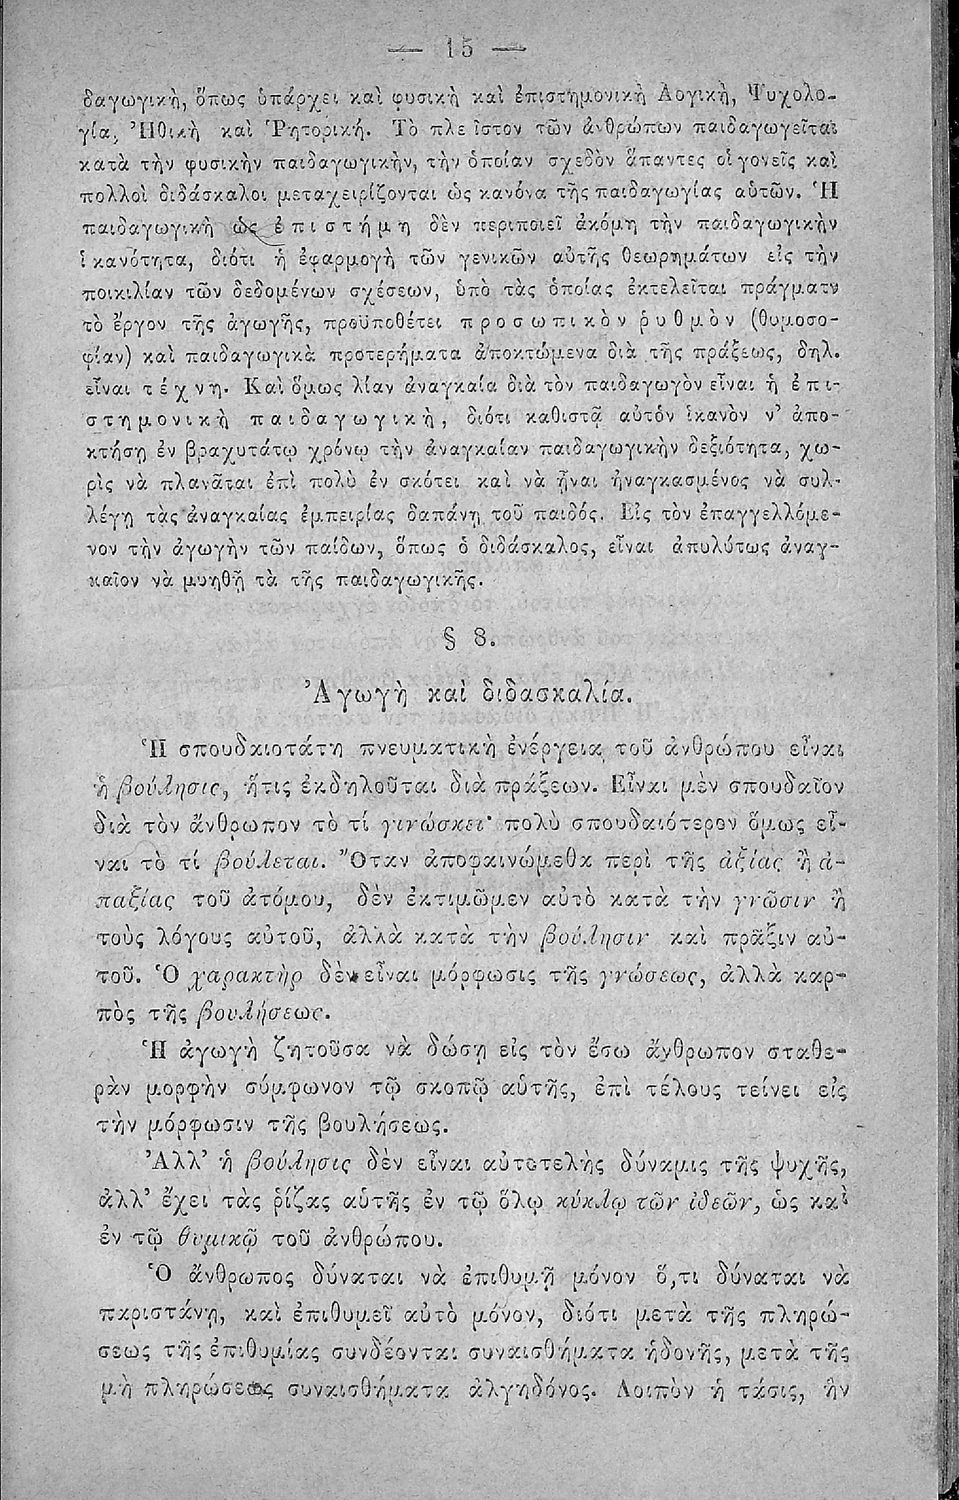 — 15 —
δαγωγικὴ, ὅπως ὑπάρχει καὶ φυσικὴ καὶ ἐπιστημονικὴ Λογικὴ, Ψυχολο-
γία, Ἠθικὴ καὶ Ῥητορική. Τὸ πλεῖστον τῶν ἀνθρώπων παιδαγωγεῖται
κατὰ τὴν φυσικὴν παιδαγωγικὴν, τὴν ὁποίαν σχεδὸν ἅπαντες οἱ γονεῖς καὶ
πολλοὶ διδάσκαλοι μεταχειρίζονται ὡς κανόνα τῆς παιδαγωγίας αὑτῶν. Ἡ
παιδαγωγικὴ ὡς ἐπιστήμη δὲν περιποιεῖ ἀκόμη τὴν παιδαγωγικὴν
ἱκανότητα, διότι ἡ ἐφαρμογὴ τῶν γενικῶν αὐτῆς θεωρημάτων εἰς τὴν
ποικιλίαν τῶν δεδομένων σχέσεων, ὑπὸ τὰς ὁποίας ἐκτελεῖται πράγματι
τὸ ἔργον τῆς ἀγωγῆς, προϋποθέτει προσωπικὸν ῥυθμὸν (θυμοσο-
φίαν) καὶ παιδαγωγικὰ προτερήματα ἀποκτώμενα διὰ τῆς πράξεως, δηλ.
εἶναι τέχνη. Καὶ ὅμως λίαν ἀναγκαία διὰ τὸν παιδαγωγὸν εἶναι ἡ ἐπι-
στημονικὴ παιδαγωγικὴ, διότι καθιστᾷ αὐτὸν ἱκανὸν ν' ἀπο-
κτήσῃ ἐν βραχυτάτῳ χρόνῳ τὴν ἀναγκαίαν παιδαγωγικὴν δεξιότητα, χω-
ρὶς νὰ πλανᾶται ἐπὶ πολὺ ἐν σκότει καὶ νὰ ᾖναι ἠναγκασμένος νὰ συλ-
λέγῃ τὰς ἀναγκαίας ἐμπειρίας δαπάνῃ τοῦ παιδός. Εἰς τὸν ἐπαγγελλόμε-
νον τὴν ἀγωγὴν τῶν παίδων, ὅπως ὁ διδάσκαλος, εἶναι ἀπολύτως ἀναγ-
καῖον νὰ μυηθῇ τὰ τῆς παιδαγωγικῆς.
§ 8.
Ἀγωγὴ καὶ διδασκαλία.
Ἡ σπουδαιοτάτη πνευματικὴ ἐνέργεια τοῦ ἀνθρώπου εἶναι
ἡ βούλησις, ἥτις ἐκδηλοῦται διὰ πράξεων. Εἶναι μὲν σπουδαῖον
διὰ τὸν ἄνθρωπον τὸ τί γινώσκει· πολὺ σπουδαιότερον ὅμως εἶ-
ναι τὸ τί βούλεται. Ὅταν ἀποφαινώμεθα περὶ τῆς ἀξίας ἢ ἀ-
παξίας τοῦ ἀτόμου, δὲν ἐκτιμῶμεν αὐτὸ κατὰ τὴν γνῶσιν ἢ
τοὺς λόγους αὐτοῦ, ἀλλὰ κατὰ τὴν βούλησιν καὶ πρᾶξιν αὐ-
τοῦ. Ὁ χαρακτὴρ δὲν εἶναι μόρφωσις τῆς γνώσεως, ἀλλὰ καρ-
πὸς τῆς βουλήσεως.
Ἡ ἀγωγὴ ζητοῦσα νὰ δώσῃ εἰς τὸν ἔσω ἄνθρωπον σταθε-
ρὰν μορφὴν σύμφωνον τῷ σκοπῷ αὑτῆς, ἐπὶ τέλους τείνει εἰς
τὴν μόρφωσιν τῆς βουλήσεως.
Ἀλλ' ἡ βούλησις δὲν εἶναι αὐτοτελὴς δύναμις τῆς ψυχῆς,
ἀλλ' ἔχει τὰς ῥίζας αὑτῆς ἐν τῷ ὅλῳ κύκλῳ τῶν ἰδεῶν, ὡς καὶ
ἐν τῷ θυμικῷ τοῦ ἀνθρώπου.
Ὁ ἄνθρωπος δύναται νὰ ἐπιθυμῇ μόνον ὅ,τι δύναται νὰ
παριστάνῃ, καὶ ἐπιθυμεῖ αὐτὸ μόνον, διότι μετὰ τῆς πληρώ-
σεως τῆς ἐπιθυμίας συνδέονται συναισθήματα ἡδονῆς, μετὰ τῆς
μὴ πληρώσεως συναισθήματα ἀλγηδόνος. Λοιπὸν ἡ τάσις, ἣν